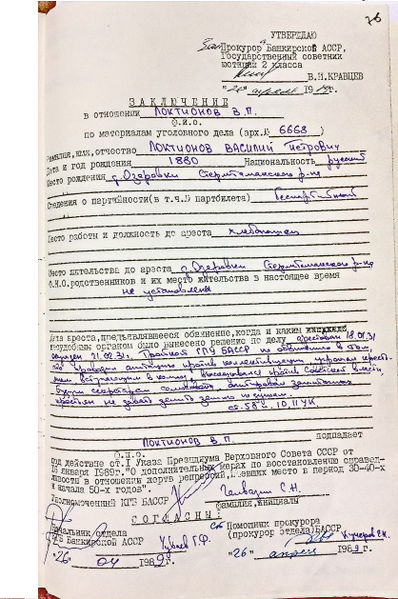 76
УТВЕРЖДАЮ
Прокурор Башкирской АССР,
Государственный советник
юстиции 2 класса
В.Н.КРАВЦЕВ
"26" апреля 19
ЗАКЛЮЧЕНИЕ
в отношении ЛОКТИОНОВ В.П.
Ф.И.О.
по материалам уголовного дела (арх.№ 6668)
Фамилия, имя, отчество ЛОКТИОНОВ ВАСИЛИЙ ПЕТРОВИЧ
Дата и год рождения 1880 Национальность русский
Место рождения д.Озеровки Стерлитамакского р-на
Сведения о партийности(в т.ч.№ партбилета) беспартийный
Место работы и должность до ареста хлебопашец
Место жительства до ареста д.Озеровки Стерлитамакского р-на
Ф.И.О.родственников и их место жительства в настоящее время
не установлены
Дата ареста,предъявлявшееся обвинение,когда и каким
несудебным органом было вынесено решение по делу арестован 18.01.31
осужден 21.02.31. Тройкой ГПУ БАССР по обвинению в том,
что проводил агитацию против коллективизации, угрожал крест-
вступающим в колхоз, высказывался против Советской власти,
секретаря сельсовета, агитировал зажиточных
крестьян не
ст.58 п. 10,11 УК
ЛОКТИОНОВ В.П. подпадает
Ф.И.О.
под действие ст.I Указа Президиума Верховного Совета СССР от
16 января 1989г."О дополнительных мерах по восстановлению справед-
ливости в отношении жертв репрессий, имевших место в период 30-40-х
и начала 50-х годов".
Уполномоченный КГБ БАССР С.Н.
фамилия,инициалы
СОГЛАСНЫ
Начальник отдела Помощник прокурора
КГБ Башкирской АССР Г.Ф. (прокурор отдела)БАССР Кучеров
"26" 04 1989г. "26" апреля 1989 г.